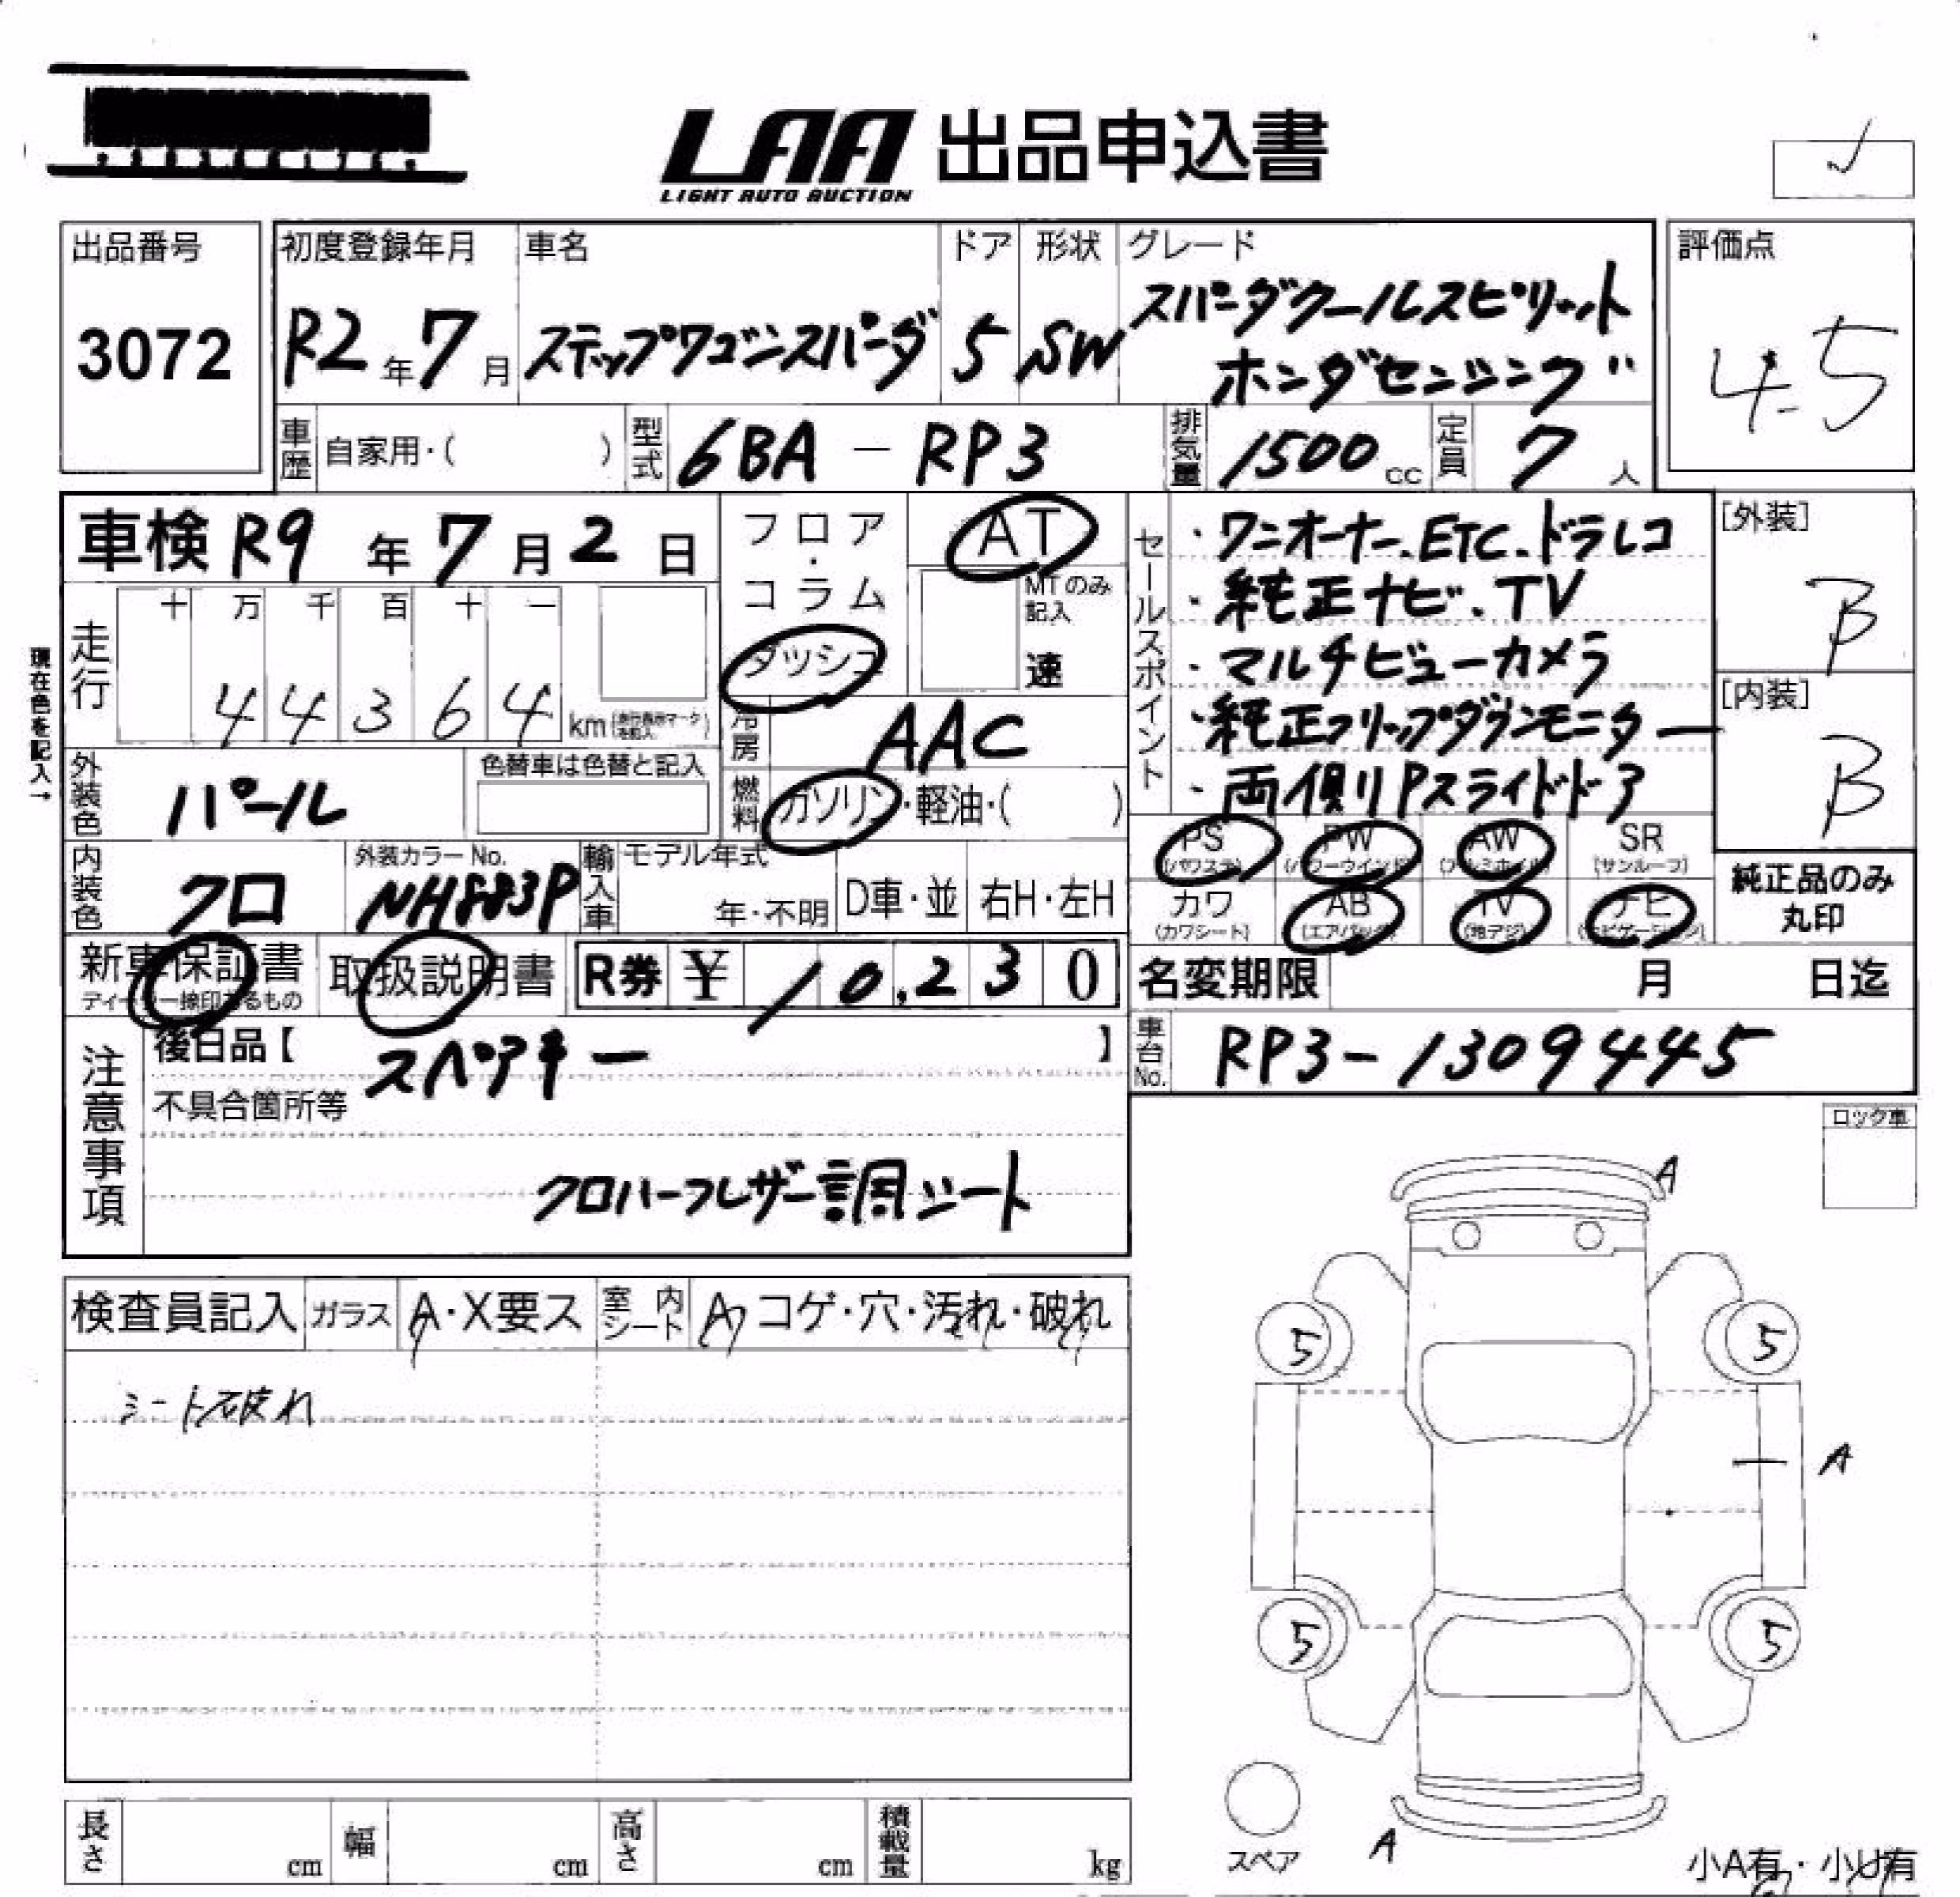 LAA 出品申込書
LIGHT AUTO AUCTION
出品番号
3072
初度登録年月
R2年7月
車名
ステップワゴンスパーダ
ドア
5
形状
SW
グレード
スパーダクールスピリット
ホンダセンシング
評価点
4.5
車歴 自家用・( )
型式 6BA - RP3
排気量 1500 cc
定員 7 人
車検 R9 年 7 月 2 日
フロア・コラム
ダッシュ
AT
MTのみ記入
速
セールスポイント
・ワンオーナー、ETC、ドラレコ
・純正ナビ、TV
・マルチビューカメラ
・純正フリップダウンモニター
・両側Pスライドドア
[外装]
B
[内装]
B
現在色を記入→
走行
十 万 千 百 十 一
4 4 3 6 4 km
冷房 AAC
外装色 パール
色替車は色替と記入
燃料 ガソリン・軽油・( )
内装色 クロ
外装カラーNo.
NH883P
輸入車
モデル年式
年・不明
D車・並
右H・左H
PS (パワステ)
PW (パワーウインド)
AW (アルミホイル)
SR (サンルーフ)
カワ (カワシート)
AB (エアバック)
TV (地デジ)
ナビ (ナビゲーション)
純正品のみ
丸印
新車保証書
取扱説明書
R券 ¥ 10,230
名変期限 月 日迄
注意事項
後日品【 スペアキー 】
不具合箇所等
クロハーフレザー調シート
車台No. RP3-1309445
ロック車
検査員記入
ガラス A・X要ス
室内シート A コゲ・穴・汚れ・破れ
シート破れ
A
5
5
A
5
5
スペア
A
小A有・小U有
長さ cm
幅 cm
高さ cm
積載量 kg